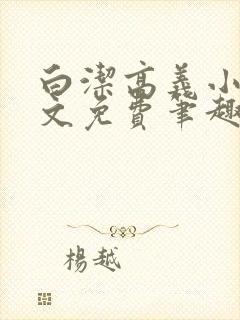 白潔高義小
文免費筆趣
楊越